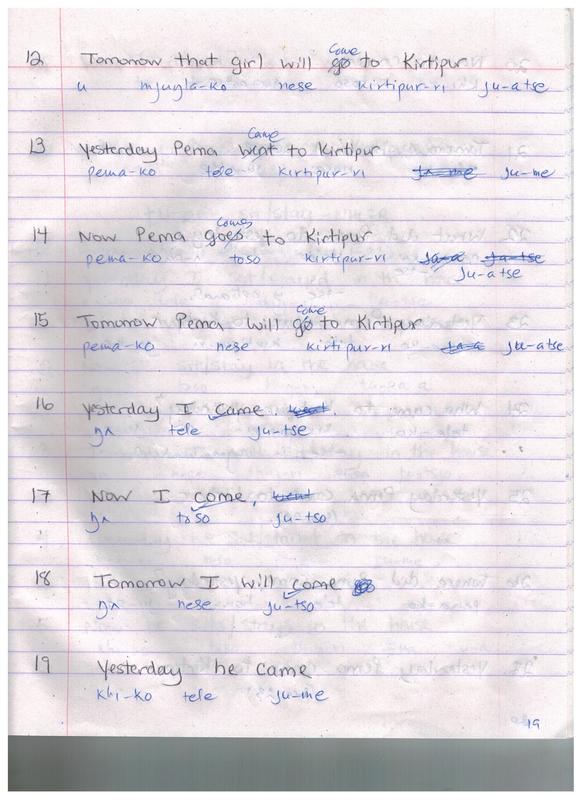 12 Tomorrow that girl will go come to Kirtipur
u mjugla-ko nese kirtipur-ri ju-atse
13 Yesterday Pema went came to Kirtipur
pema-ko tele kirtipur-ri ja-me ju-me
14 Now Pema goes comes to Kirtipur
pema-ko toso kirtipur-ri ja-a ja-tse
ju-atse
15 Tomorrow Pema will go come to Kirtipur
pema-ko nese kirtipur-ri ja-a ju-atse
16 Yesterday I came. went.
ŋʌ tele ju-tse
17 Now I come, went
ŋʌ toso ju-tso
18 Tomorrow I will come
ŋʌ nese ju-tso
19 Yesterday he came
khi-ko tele ju-me
19